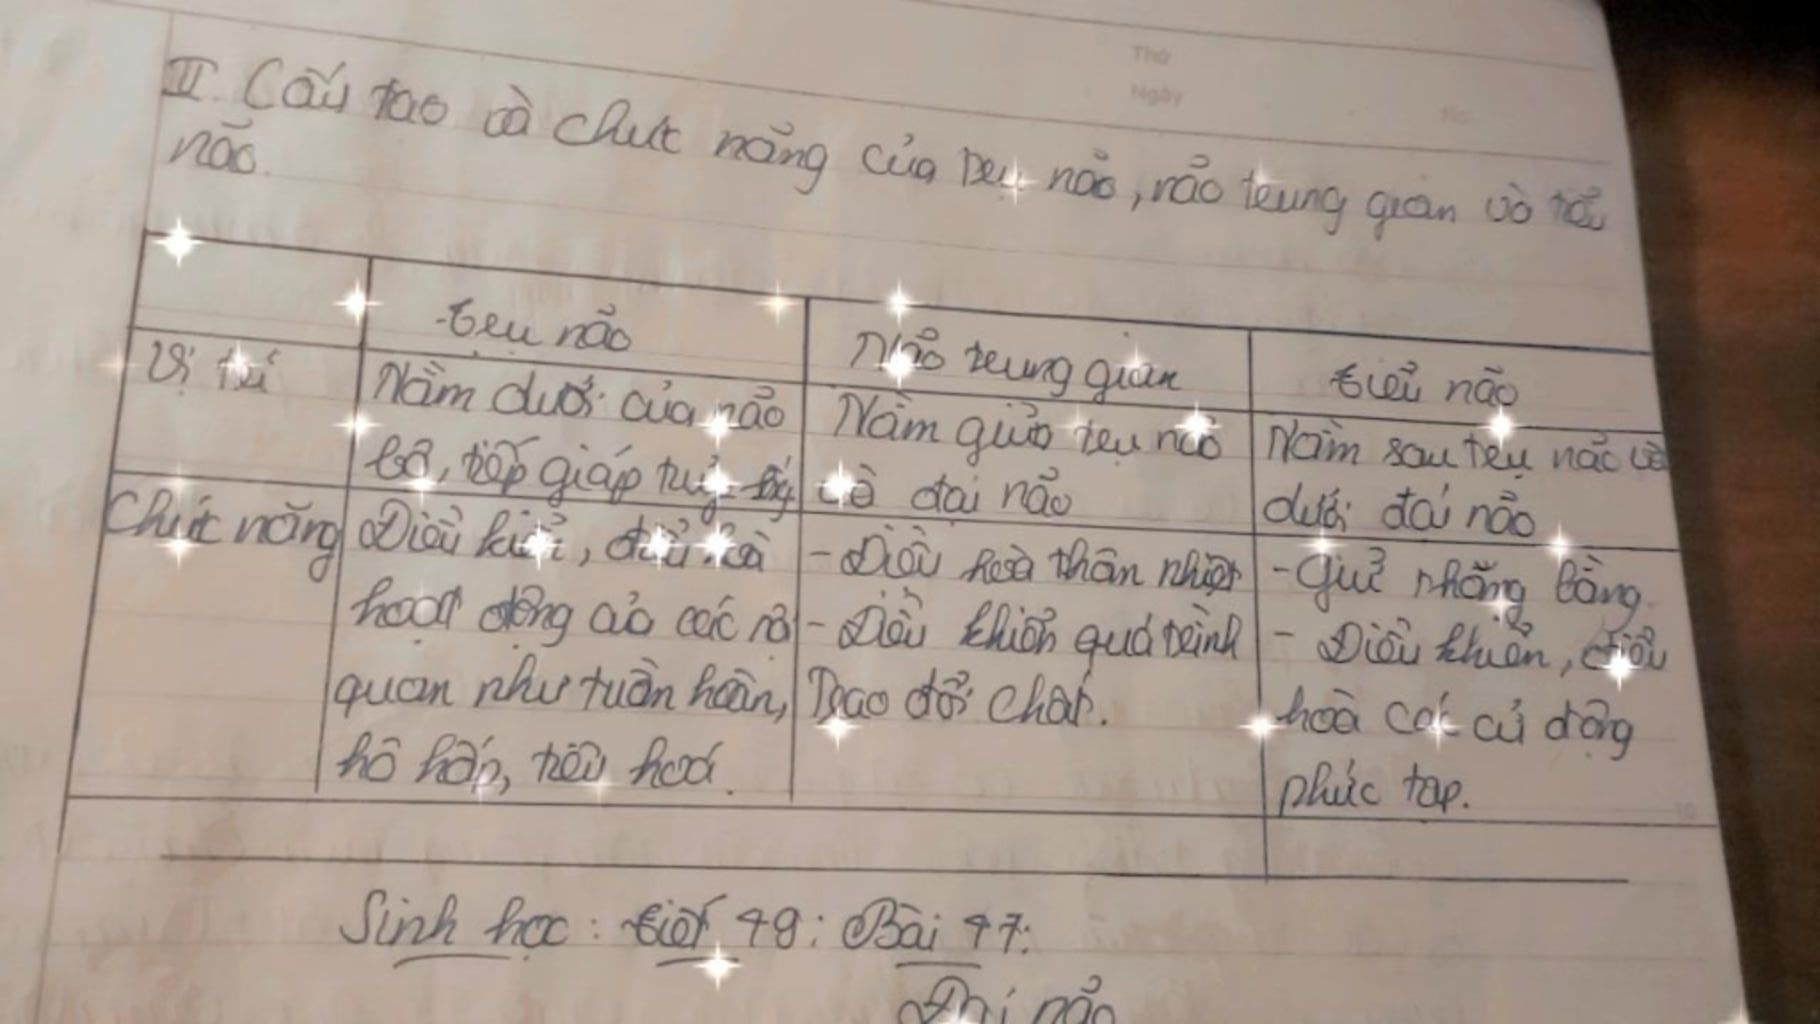 Thứ
Ngày
No.
II. Cấu tạo và chức năng của trụ não, não trung gian và tiểu
não.
trụ não
Não trung gian
tiểu não
Vị trí
Nằm dưới của não
bộ, tiếp giáp tuỷ
Nằm giữa trụ não
và đại não
Nằm sau trụ não và
dưới đại não
Chức năng
Điều khiển, điều hoà
hoạt động của các
quan như tuần hoàn,
hô hấp, tiêu hoá.
- Điều hoà thân nhiệt
- Điều khiển quá trình
trao đổi chất.
- Giữ thăng bằng.
- Điều khiển, điều
hoà các cử động
phức tạp.
Sinh học: tiết 49: Bài 47:
Đại não